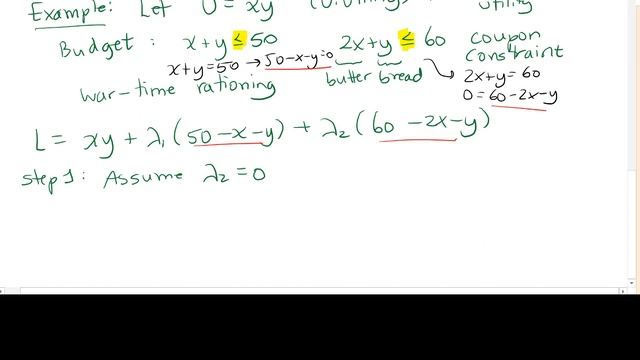 Example: Let U = xy utility
Budget: x+y ≤ 50 2x+y ≤ 60 coupon constraint
x+y=50 → 50-x-y=0 butter bread 2x+y=60
war-time rationing 0=60-2x-y
L = xy + λ₁ (50-x-y) + λ₂ (60-2x-y)
Step 1: Assume λ₂ = 0